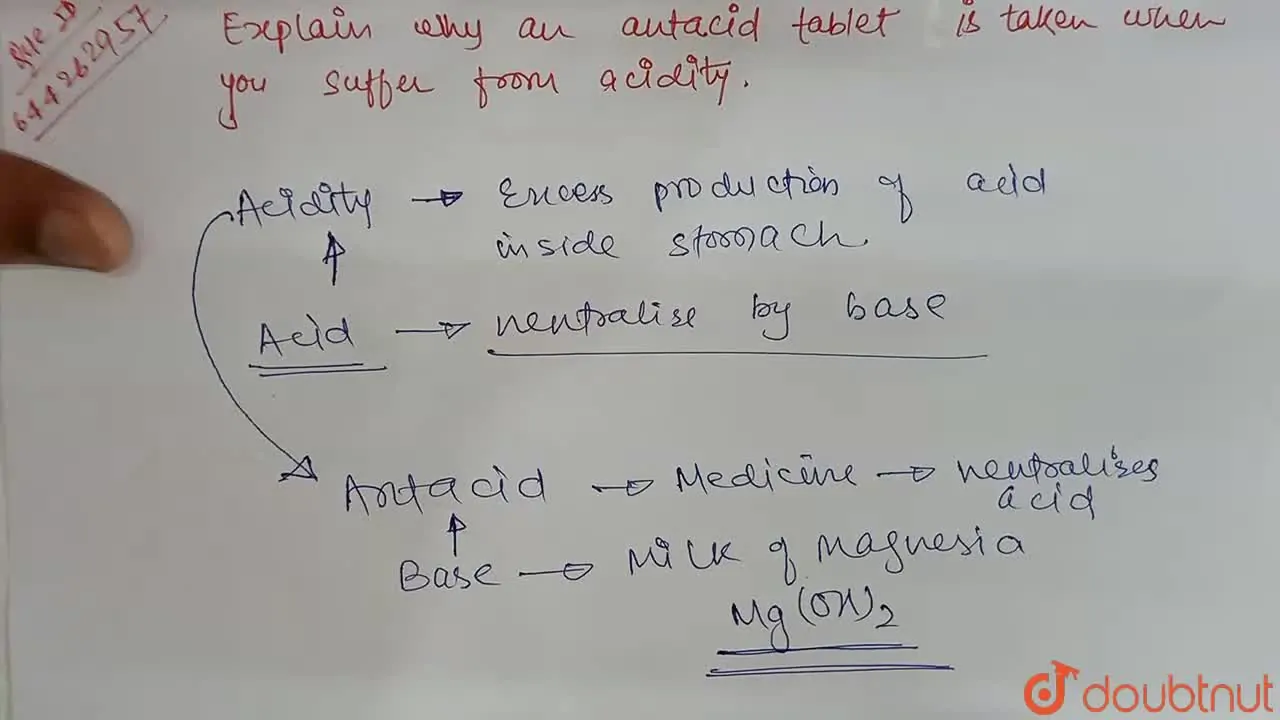 644262957
Explain why an antacid tablet is taken when
you suffer from acidity.
Acidity → Excess production of acid
inside stomach.
Acid → neutralise by base
Antacid → Medicine → neutralises
acid
Base → Milk of Magnesia
Mg(OH)2
doubtnut